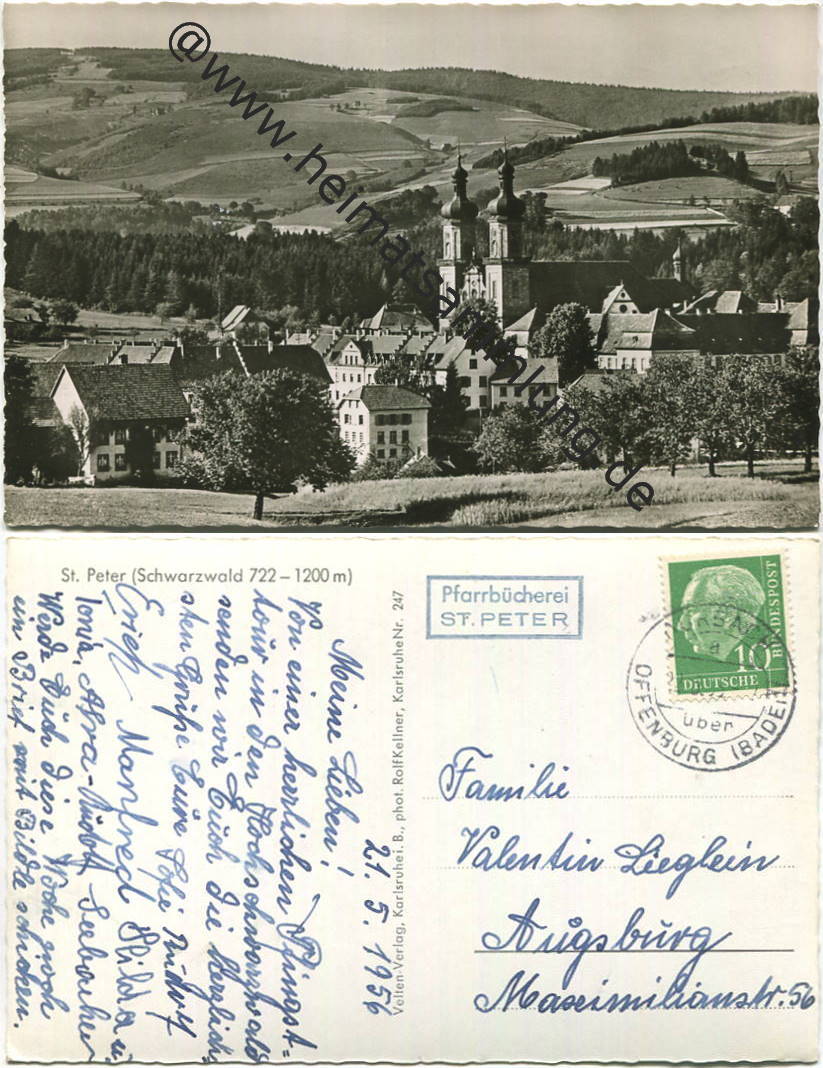 @www.heimatsammlung.de
St. Peter (Schwarzwald 722 – 1200 m)
21. 5. 1956
Meine Lieben!
Von einer herrlichen Pfingst=
tour in den Hochschwarzwald
senden wir Euch die herzlich=
sten Grüße Eure
Rudolf
Erich Manfred Hilda u.
Tonia, Afra - Rudolf
Werde Euch diese Woche noch
ein Brief mit Bildle schicken.
Velten-Verlag, Karlsruhe i. B., phot. Rolf Kellner, Karlsruhe Nr. 247
Pfarrbücherei
ST. PETER
10
DEUTSCHE
BUNDESPOST
über
OFFENBURG (BADEN)
Familie
Valentin Lieglein
Augsburg
Maximilianstr. 56